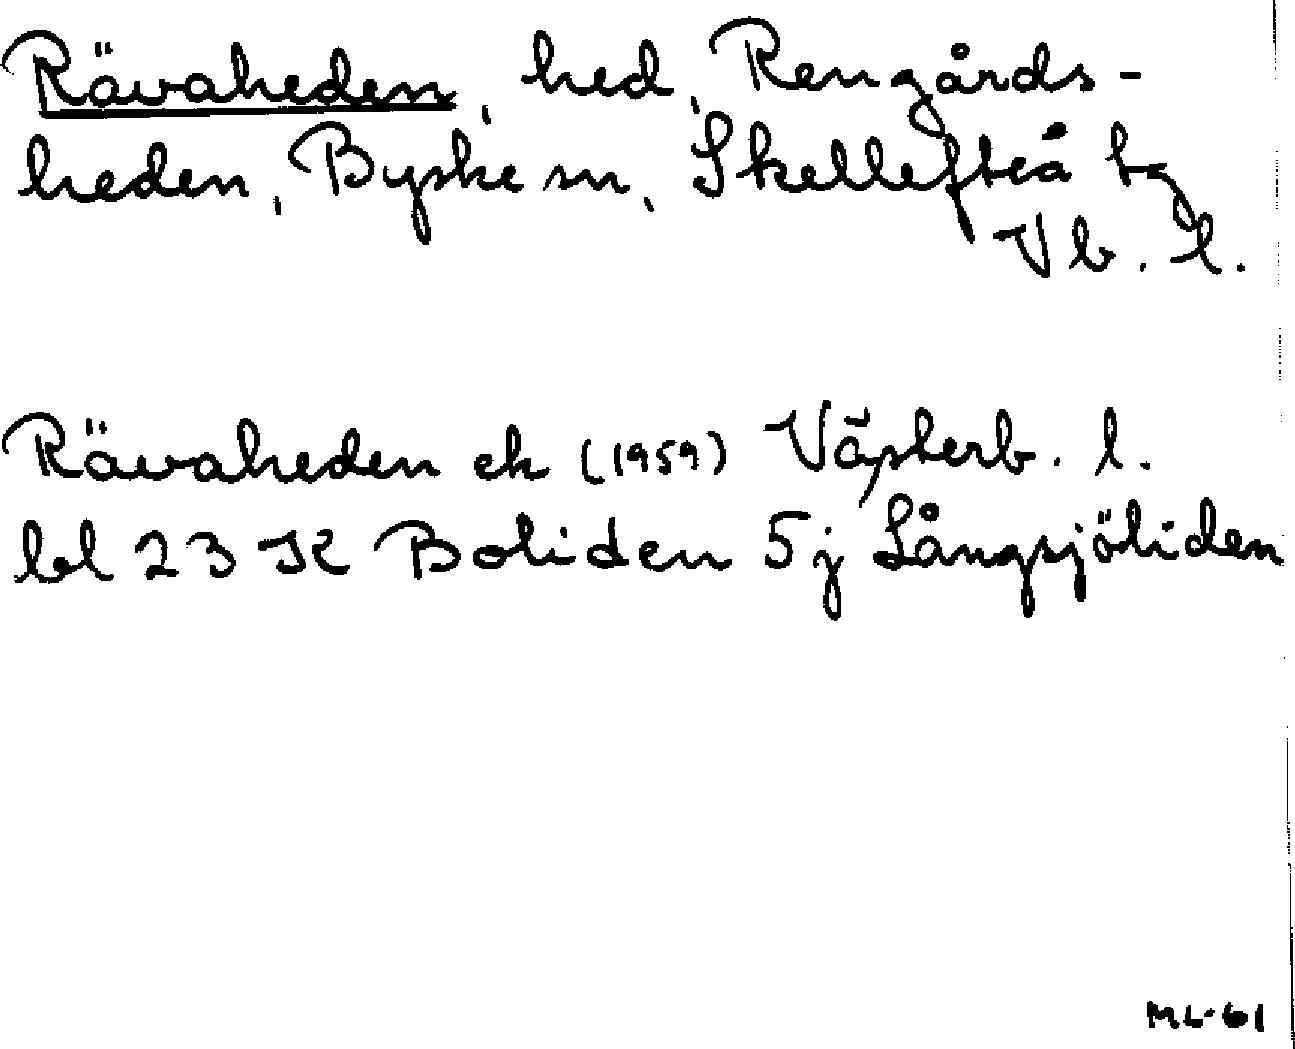 Rävaheden, hed, Rengårds-
heden, Byske sn, Skellefteå tg
Vb. l.
Rävaheden ek (1959) Västerb. l.
bl 23 K Boliden 5 j Långsjöliden
ML-61